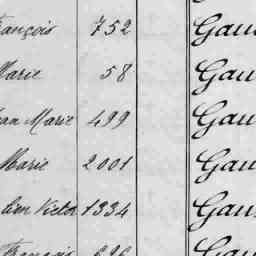 ançois 752 Gau
Marie 58 Gau
an Marie 499 Gau
Marie 2001 Gau
lien Victor 1334 Gau
François 696 Gau